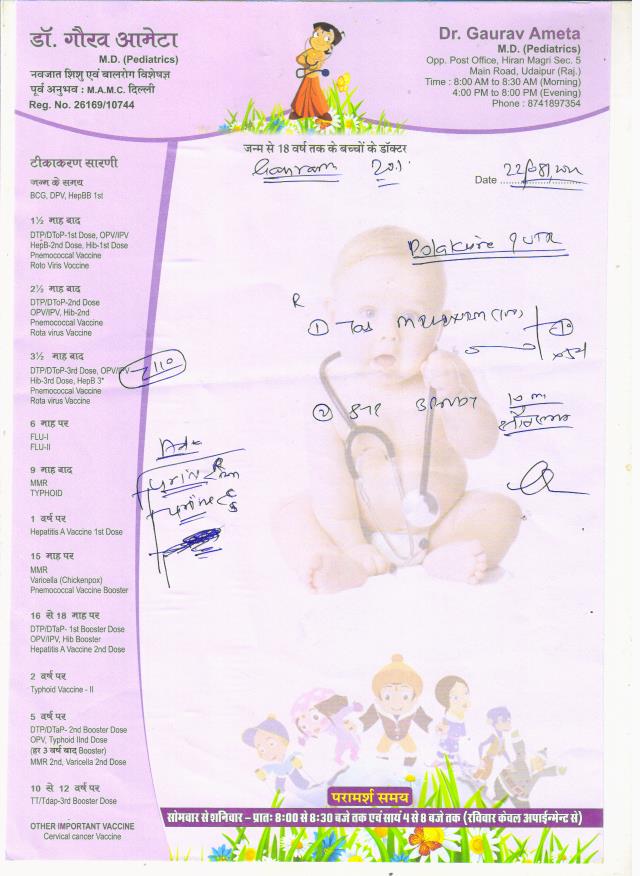 डॉ. गौरव आमेटा
M.D. (Pediatrics)
नवजात शिशु एवं बालरोग विशेषज्ञ
पूर्व अनुभव : M.A.M.C. दिल्ली
Reg. No. 26169/10744
Dr. Gaurav Ameta
M.D. (Pediatrics)
Opp. Post Office, Hiran Magri Sec. 5
Main Road, Udaipur (Raj.)
Time : 8:00 AM to 8:30 AM (Morning)
4:00 PM to 8:00 PM (Evening)
Phone : 8741897354
जन्म से 18 वर्ष तक के बच्चों के डॉक्टर
Date
टीकाकरण सारणी
जन्म के समय
BCG, DPV, HepBB 1st
1½ माह बाद
DTP/DToP-1st Dose, OPV/IPV
HepB-2nd Dose, Hib-1st Dose
Pnemococcal Vaccine
Roto Viris Voccine
2½ माह बाद
DTP/DToP-2nd Dose
OPV/IPV, Hib-2nd
Pnemococcal Vaccine
Rota virus Vaccine
3½ माह बाद
DTP/DToP-3rd Dose, OPV/IPV
Hib-3rd Dose, HepB 3*
Pnemococcal Vaccine
Rota virus Vaccine
6 माह पर
FLU-I
FLU-II
9 माह बाद
MMR
TYPHOID
1 वर्ष पर
Hepatitis A Vaccine 1st Dose
15 माह पर
MMR
Varicella (Chickenpox)
Pnemococcal Vaccine Booster
16 से 18 माह पर
DTP/DTaP- 1st Booster Dose
OPV/IPV, Hib Booster
Hepatitis A Vaccine 2nd Dose
2 वर्ष पर
Typhoid Vaccine - II
5 वर्ष पर
DTP/DTaP- 2nd Booster Dose
OPV, Typhoid IInd Dose
(हर 3 वर्ष बाद Booster)
MMR 2nd, Varicella 2nd Dose
10 से 12 वर्ष पर
TT/Tdap-3rd Booster Dose
OTHER IMPORTANT VACCINE
Cervical cancer Vaccine
R
①
②
10 ml
Adv
urine R/m
urine C/S
परामर्श समय
सोमवार से शनिवार – प्रातः 8:00 से 8:30 बजे तक एवं सायं 4 से 8 बजे तक (रविवार केवल अपाईन्मेन्ट से)